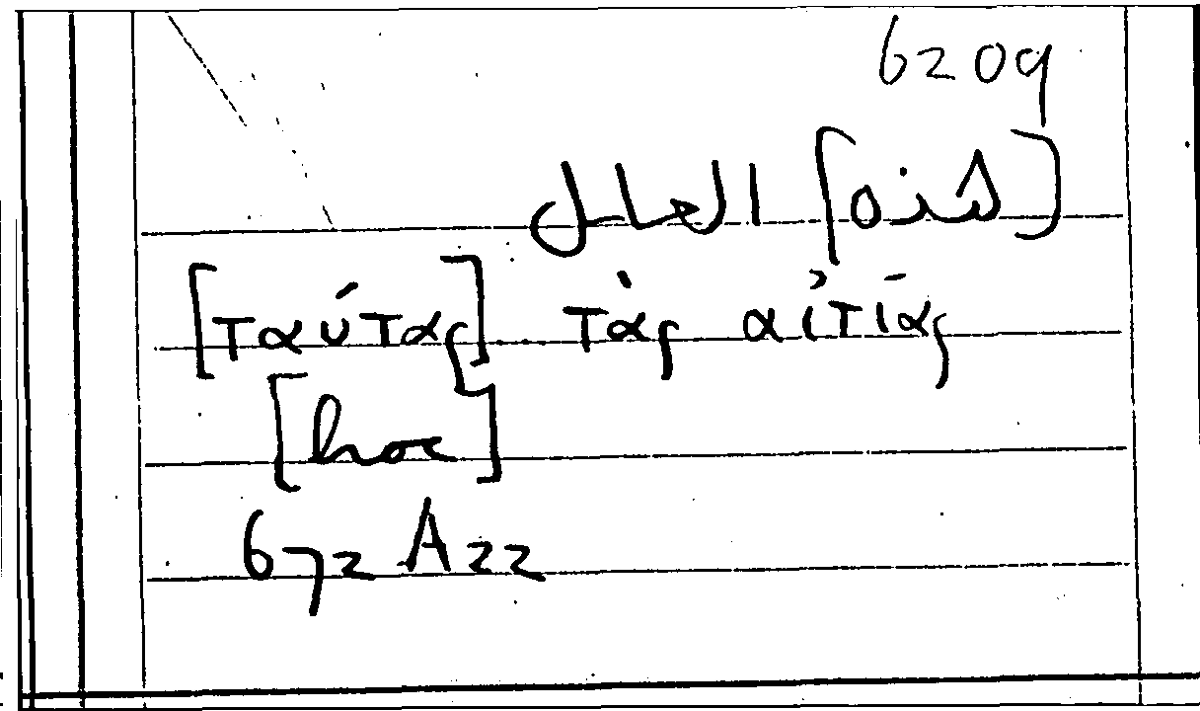 6209
[هذه] العلل
[ταύτας] τὰς αἰτίας
[hoc]
672 A22